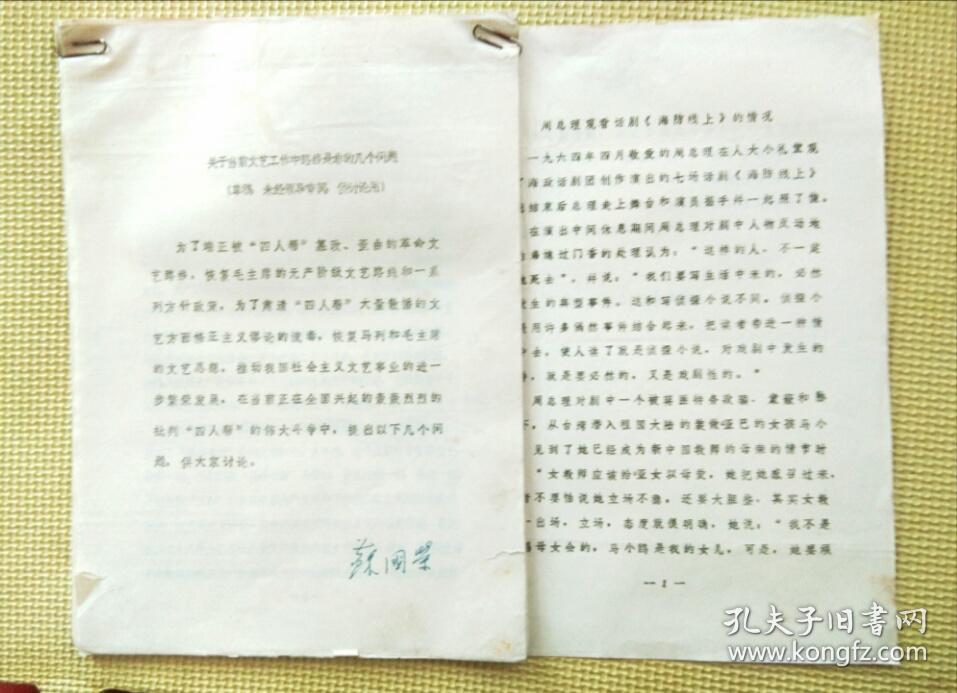 关于当前文艺工作中路线是非的几个问题
(草稿 未经领导审阅 供讨论用)
为了端正被“四人帮”篡改、歪曲的革命文
艺路线,恢复毛主席的无产阶级文艺路线和一系
列方针政策,为了肃清“四人帮”大量散播的文
艺方面修正主义谬论的流毒,恢复马列和毛主席
的文艺思想,推动我国社会主义文艺事业的进一
步繁荣发展,在当前正在全国兴起的轰轰烈烈的
批判“四人帮”的伟大斗争中,提出以下几个问
题,供大家讨论。
苏国荣
周总理观看话剧《海防线上》的情况
一九六四年四月敬爱的周总理在人大小礼堂观
了海政话剧团创作演出的七场话剧《海防线上》
结束后总理走上舞台和演员握手并一起照了像。
在演出中间休息期间周总理对剧中人物反动地
过门香的处理认为:“这样的人,不一定
死去”。并说:“我们要写生活中来的,必然
发生的典型事件。这和写侦探小说不同,侦探小
是用许多偶然事件结合起来,把读者带进一种情
中去,使人读了就是侦探小说,对戏剧中发生的
,就是要必然的,又是戏剧性的。”
周总理对剧中一个被蒋匪特务欺骗、蒙蔽和
下,从台湾潜入祖国大陆的装做亚巴的女孩马小
见到了她已经成为新中国教师的母亲的情节时
“女教师应该给亚女以母爱,她把她感召过来,
不要怕说她立场不稳,还要大胆些,其实女教
一出场,立场,态度就很明确,她说:“我不是
母女会的,马小鸥是我的女儿,可是,她要顽
—1—
孔夫子旧书网
www.kongfz.com